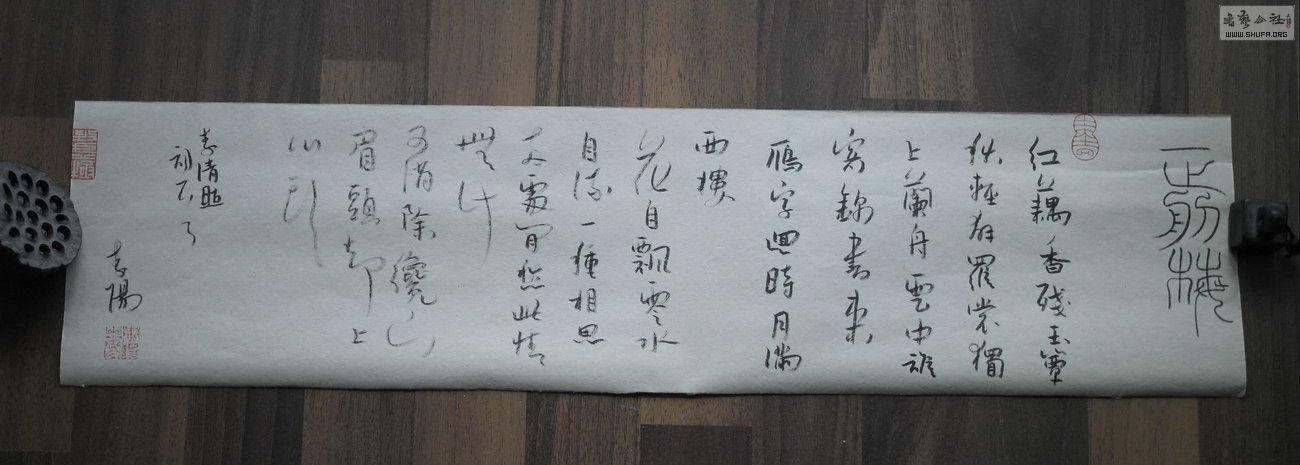 一剪梅
红藕香殘玉簟
秋輕解羅裳獨
上蘭舟雲中誰
寄錦書來
鴈字迴時月滿
西樓
花自飄零水
自流一種相思
二處閒愁此情
無计
可消除纔下
眉頭却上
心頭
李清照
詞
陽
書藝公社
WWW.SHUFA.ORG